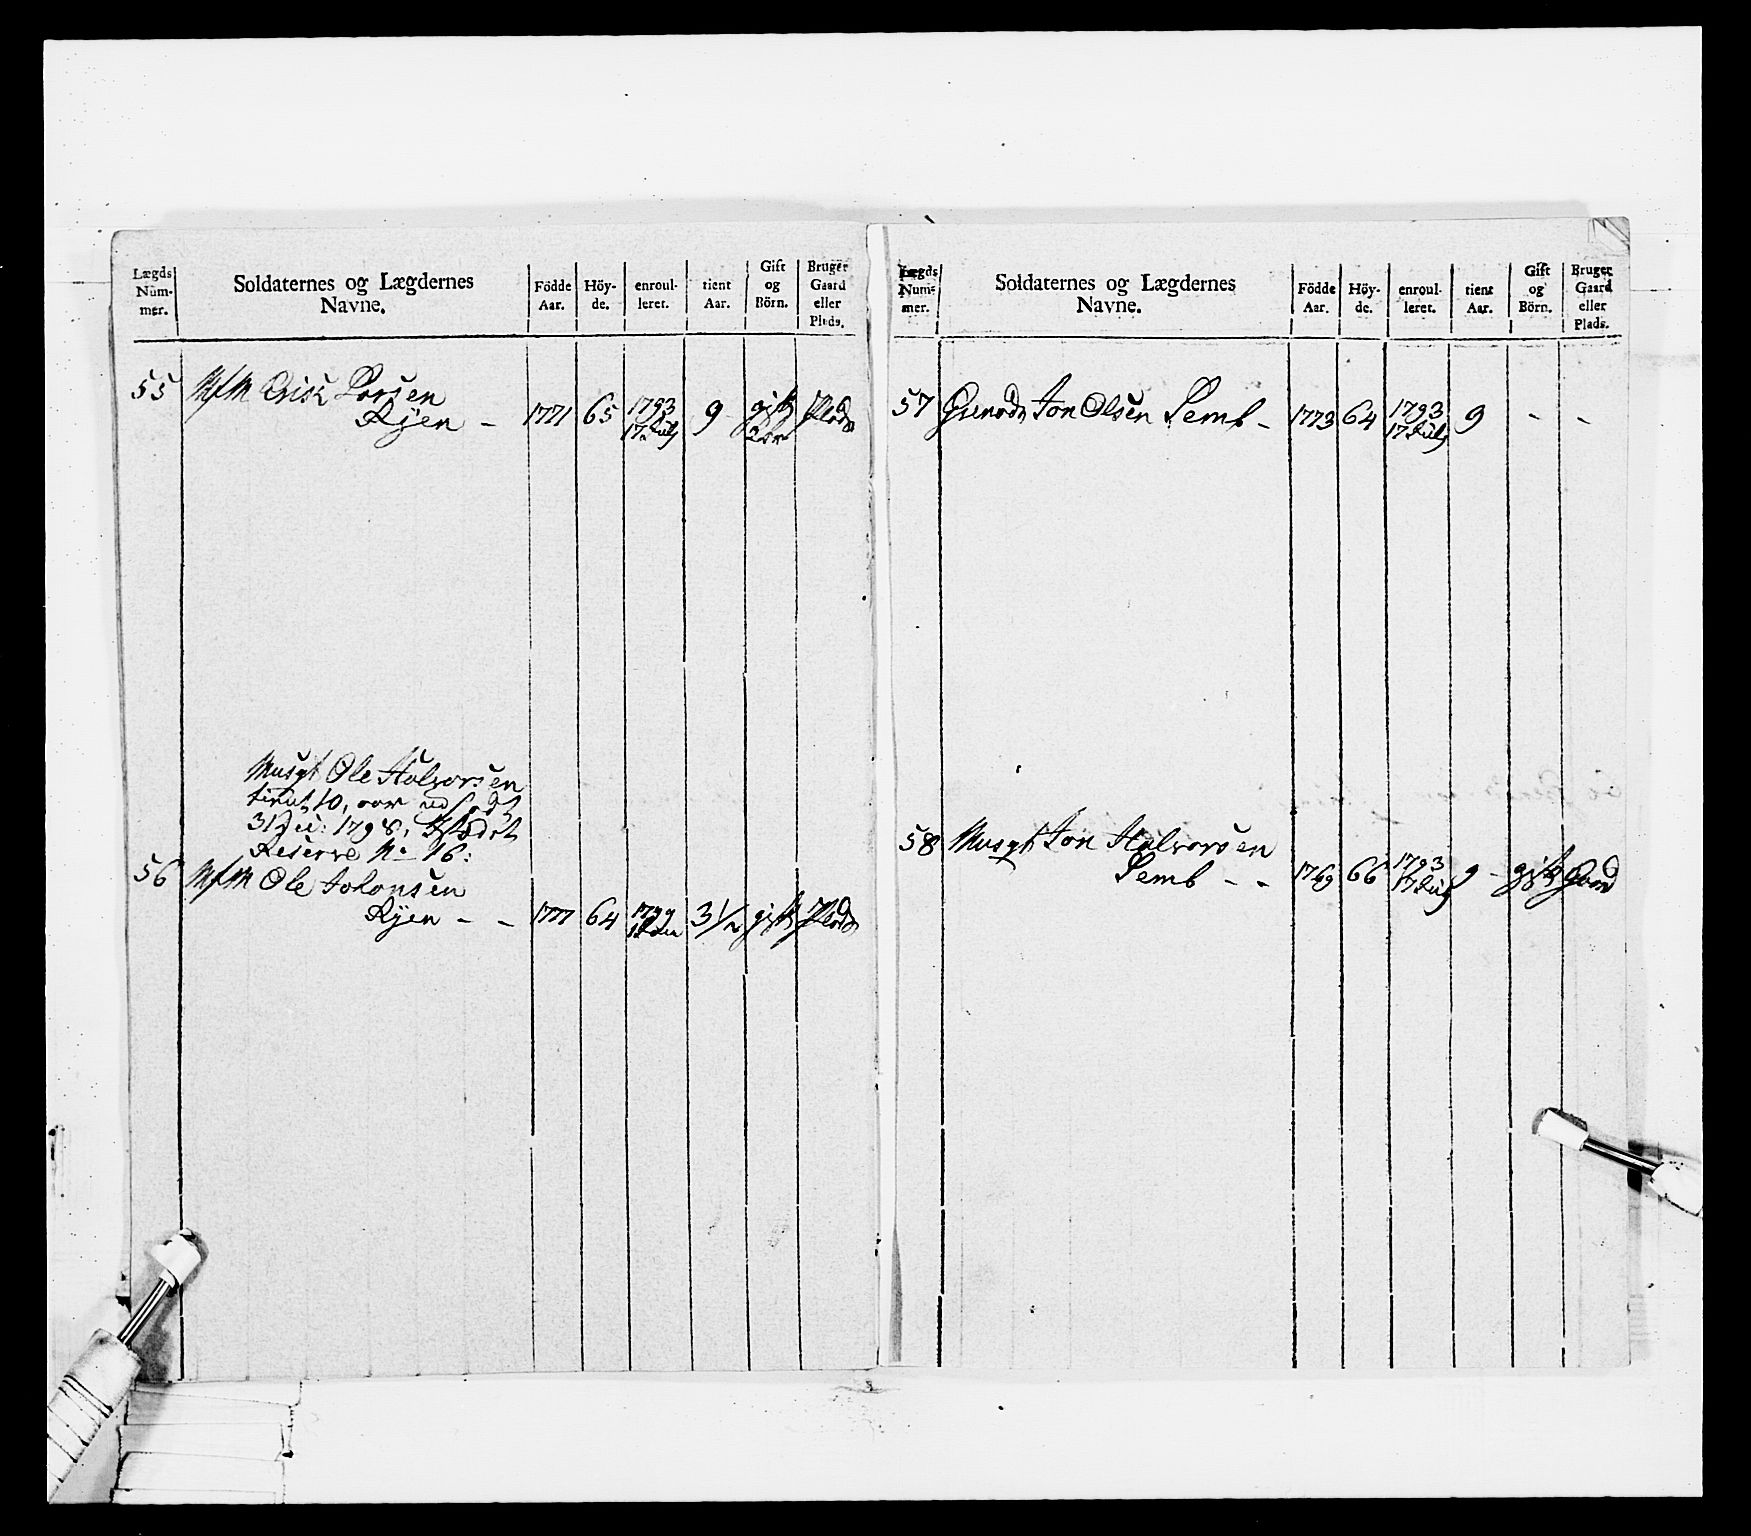 Lægds
Num-
mer.
Soldaternes og Lægdernes
Navne.
Födde
Aar.
Höy-
de.
enroul-
leret.
tient
Aar.
Gift
og
Börn.
Bruger
Gaard
eller
Plads.
55 Erick Larsen
Ryen – 1771 65 1793 17 July 9 gift Plads
Musqt Ole Halvorsen
tient 10, aar
31 De: 1798,
Reserve No 16:
56 Ole Johansen
Ryen – – 1777 64 1799 3½ gift Plads
Lægds
Num-
mer.
Soldaternes og Lægdernes
Navne.
Födde
Aar.
Höy-
de.
enroul-
leret.
tient
Aar.
Gift
og
Börn.
Bruger
Gaard
eller
Plads.
57 Grenadr Jon Olsen Semb – 1773 64 1793 17 July 9 – –
58 Musqt Jon Halvorsen
Semb – – 1769 66 1793 17 July 9 – gift Gaard